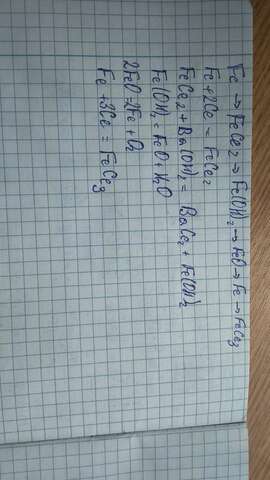 Fe → FeCl₂ → Fe(OH)₂ → FeO → Fe → FeCl₃
Fe + 2Cl = FeCl₂
FeCl₂ + Ba(OH)₂ = BaCl₂ + Fe(OH)₂
Fe(OH)₂ = FeO + H₂O
2FeO = 2Fe + O₂
Fe + 3Cl = FeCl₃